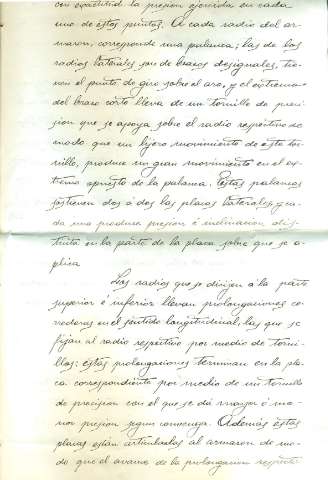 con exactitud la presion ejercida en cada
uno de estos puntos. A cada radio del ar-
mazon, corresponde una palanca; las de los
radios laterales son de brazos desiguales, tie-
nen el punto de giro sobre el aro, y el extremo
del brazo corto lleva de un tornillo de preci-
sion que se apoya sobre el radio respectivo de
modo que un lijero movimiento de este tor-
nillo, produce un gran movimiento en el ex-
tremo opuesto de la palanca. Estas palancas
sostienen dos á dos las placas laterales y ca-
da una produce presion é inclinacion dis-
tinta en la parte de la placa sobre que se a-
plica
Los radios que se dirigen á la parte
superior é inferior llevan prolongaciones co-
rrederas en el sentido longitudinal, las que se
fijan al radio respectivo por medio de torni-
llos: estas prolongaciones terminan en la pla-
ca correspondiente por medio de un tornillo
de precision con el que se dá mayor ó me-
nor presion segun convenga. Además estas
placas están articuladas al armazon de mo-
do que el avance de la prolongacion respecto